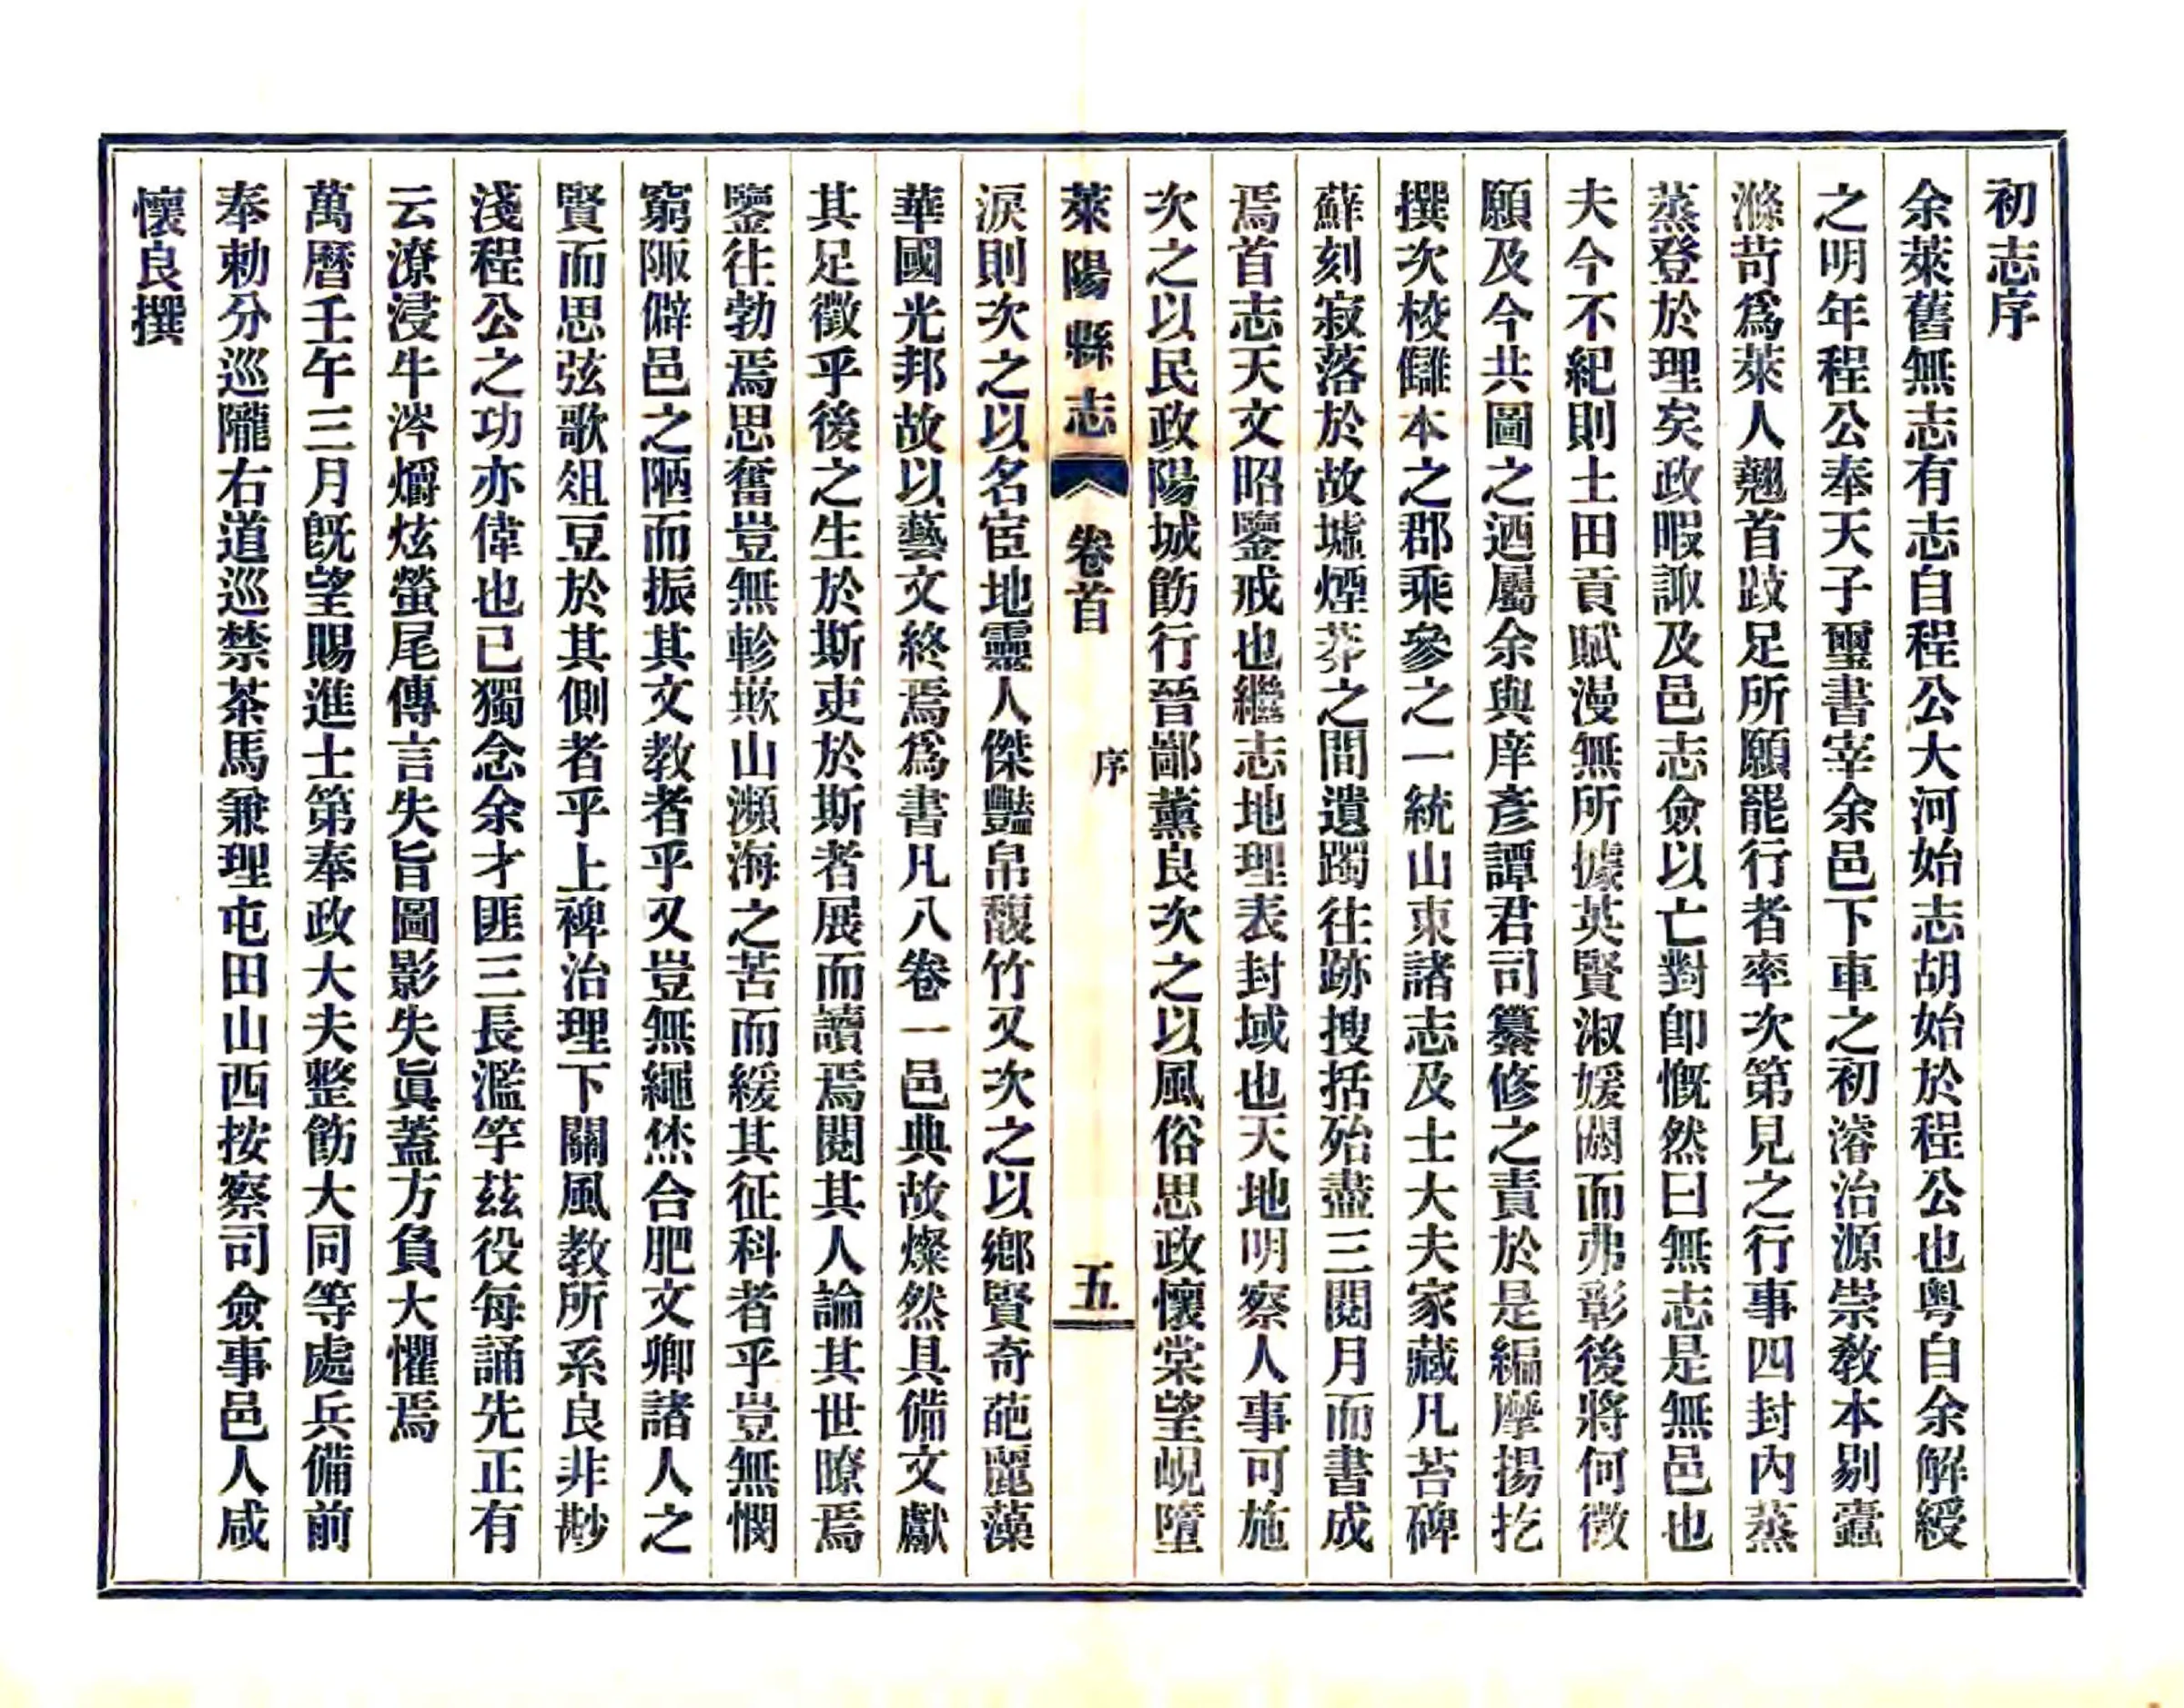 初志序
余萊舊無志有志自程公大河始志胡始於程公也粵自余解綬
之明年程公奉天子璽書宰余邑下車之初濬治源崇敎本剔蠹
滌苛爲萊人翹首跂足所願罷行者率次第見之行事四封內蒸
蒸登於理矣政暇諏及邑志僉以亡對卽慨然曰無志是無邑也
夫今不紀則土田貢賦漫無所據英賢淑媛閼而弗彰後將何徵
願及今共圖之迺屬余與庠彥譚君司纂修之責於是編摩揚扢
撰次校讎本之郡乘參之一統山東諸志及士大夫家藏凡苔碑
蘚刻寂落於故墟煙莽之間遺躅往跡搜括殆盡三閱月而書成
焉首志天文昭鑒戒也繼志地理表封域也天地明察人事可施
次之以民政陽城飭行晉鄙薰良次之以風俗思政懷棠望峴墮
萊陽縣志 卷首 序 五
淚則次之以名宦地靈人傑豔帛馥竹又次之以鄉賢奇葩麗藻
華國光邦故以藝文終焉爲書凡八卷一邑典故燦然具備文獻
其足徵乎後之生於斯吏於斯者展而讀焉閱其人論其世瞭焉
鑒往勃焉思奮豈無軫欺山瀕海之苦而緩其征科者乎豈無憫
窮陬僻邑之陋而振其文教者乎又豈無繩烋合肥文卿諸人之
賢而思弦歌俎豆於其側者乎上裨治理下關風教所系良非尠
淺程公之功亦偉也已獨念余才匪三長濫竽茲役每誦先正有
云潦浸牛涔爝炫螢尾傳言失旨圖影失眞蓋方負大懼焉
萬曆壬午三月旣望賜進士第奉政大夫整飭大同等處兵備前
奉勅分巡隴右道巡禁茶馬兼理屯田山西按察司僉事邑人咸
懷良撰